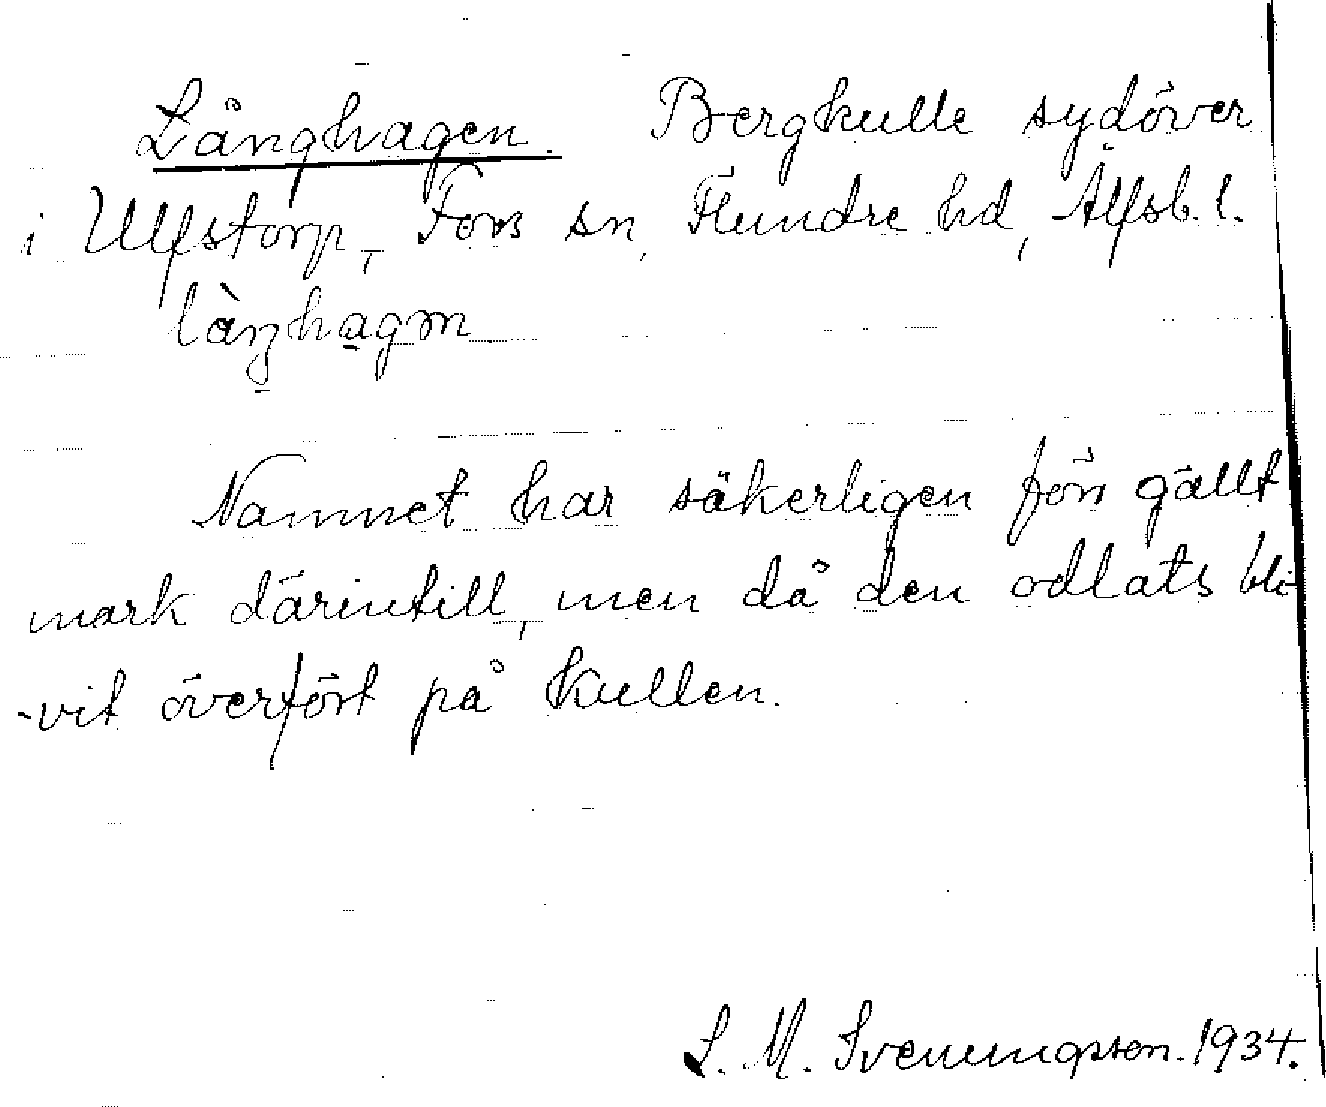 Långhagen. Bergkulle sydöver
i Ulfstorp, Fors sn, Flundre hd, Älfsb. l.
làŋhagm
Namnet har säkerligen förr gällt
mark därintill, men då den odlats bli-
-vit överfört på kullen.
L. M. Svenungsson. 1934.